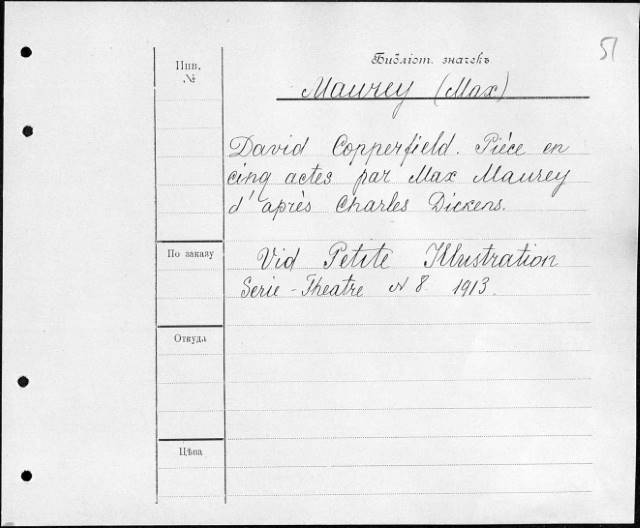 51
Инв. №
Библіот. значекъ
Maurey (Max)
David Copperfield. Pièce en
cinq actes par Max Maurey
d'après Charles Dickens.
По заказу
Vid Petite Illustration
Serie-Theatre N 8 1913.
Откуда
Цѣна